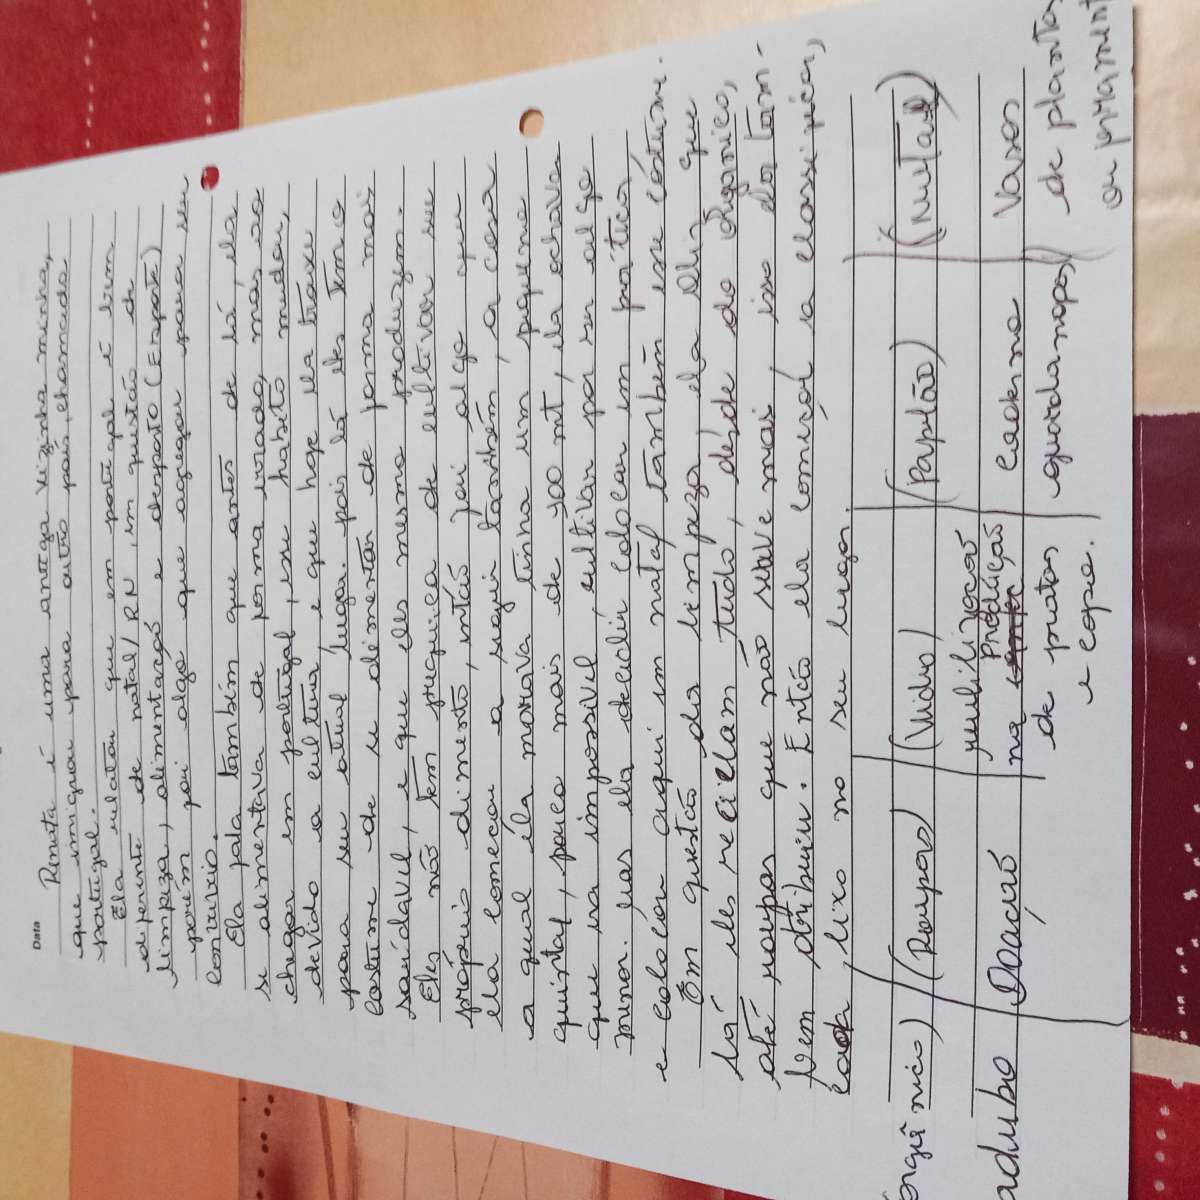 Data
Renata é uma antiga vizinha minha,
que imigrou para outro país, chamado
portugal.
Ela relatou que em portugal é bem
diferente de natal/RN, em questão de
limpeza, alimentação e desporto (Esporte)
porém foi algo que agregou para seu
convívio.
Ela fala também que antes de lá, ela
se alimentava de forma errada, mas ao
chegar em portugal, esse habito mudou,
devido a cultura, e que hoje ela traxe
para seu atual lugar. pois lá eles tem o
costume de se alimentar de forma mais
saúdavel, e que eles mesmo produzem.
Eles não tem preguiça de cultivar seu
próprio alimento, então foi algo que
ela começou a seguir também, a casa
a qual ela morava tinha um pequeno
quintal, pouco mais de 400 mt, ela achava
que era impossível, cultivar por ser algo
menor. mas ela decidiu colocar em prática
e colocar aqui em natal também esse costume.
Em questão da limpeza ela diz que
lá eles reciclam tudo, desde do orgânico,
até roupas que não serve mais, isso ela tam-
bem atribuiu. Então ela começou a classificar,
cada lixo no seu lugar.
(orgânico) (Roupas) (Vidro) (Papelão) (Metal)
adubo Doação reutilização
na Produção
de pratos
e copo.
Caderno
guardanapos
Vasos
de plantas
ou